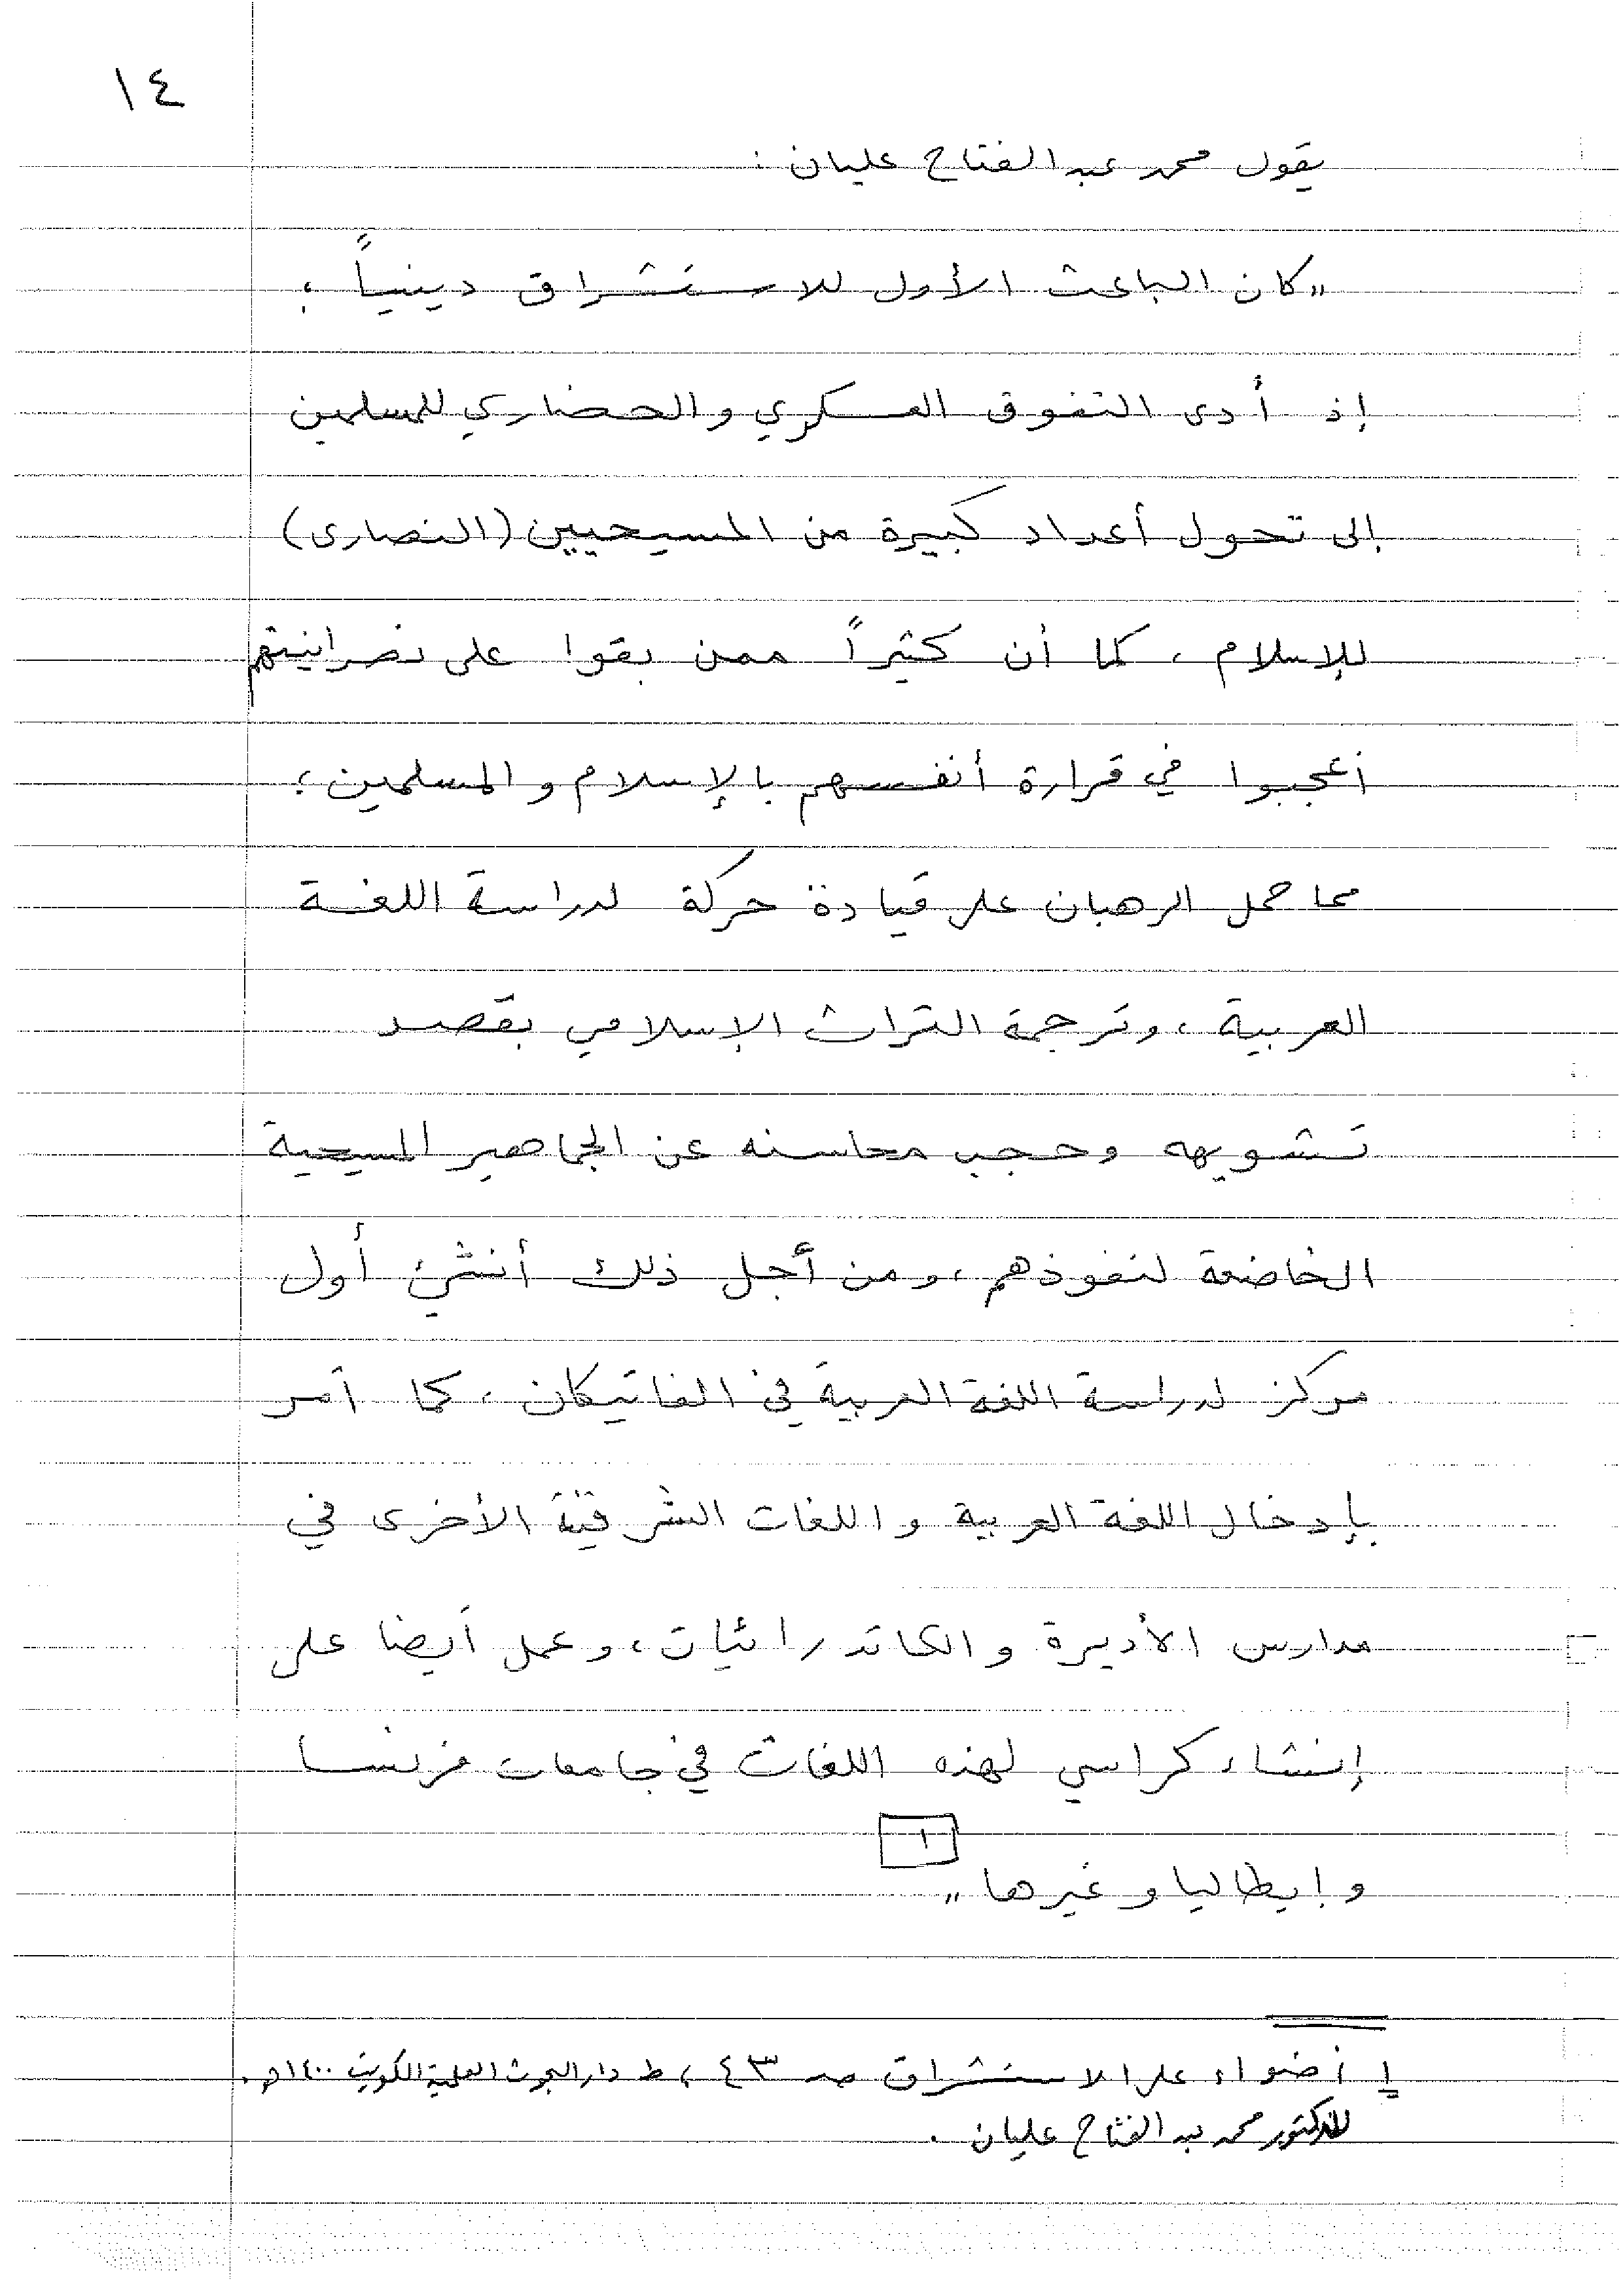 ١٤
يقول محمد عبد الفتاح عليان :
"كان الباعث الأول للاستشراق دينياً ؛
إذ أدى التفوق العسكري والحضاري للمسلمين
إلى تحول أعداد كبيرة من المسيحيين (النصارى)
للإسلام ، كما أن كثيراً ممن بقوا على نصرانيتهم
أعجبوا في قرارة أنفسهم بالإسلام والمسلمين ؛
مما حمل الرهبان على قيادة حركة لدراسة اللغة
العربية ، وترجمة التراث الإسلامي بقصد
تشويهه وحجب محاسنه عن الجماهير المسيحية
الخاضعة لنفوذهم ، ومن أجل ذلك أنشئ أول
مركز لدراسة اللغة العربية في الفاتيكان ، كما أمر
بإدخال اللغة العربية واللغات الشرقية الأخرى في
مدارس الأديرة والكاتدرائيات ، وعمل أيضا على
إنشاء كراسي لهذه اللغات في جامعات فرنسا
وإيطاليا وغيرها" ١
١ أضواء على الاستشراق صـ ٤٣ ، ط دار البحوث العلمية الكويت ١٤٠٠هـ .
للدكتور محمد عبد الفتاح عليان .